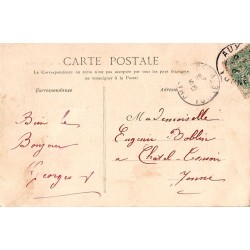 CARTE POSTALE
La Correspondance au recto n'est pas acceptée par tous les pays étrangers
se renseigner à la Poste
Correspondance
Adresse
Bien le
Bonjour
Georges
Mademoiselle
Eugenie
a Chatel-
Yonne